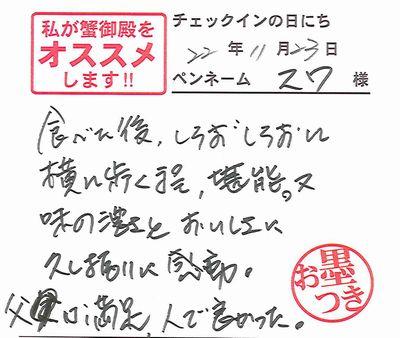 私が蟹御殿を
オススメ
します!!
チェックインの日にち
22年11月23日
ペンネーム スワ 様
食べた後、しろおじしろおに
横に歩く程、堪能。又
味の濃さとおいしさに
久し振りに感動。
父 満足、人で良かった。
お墨つき